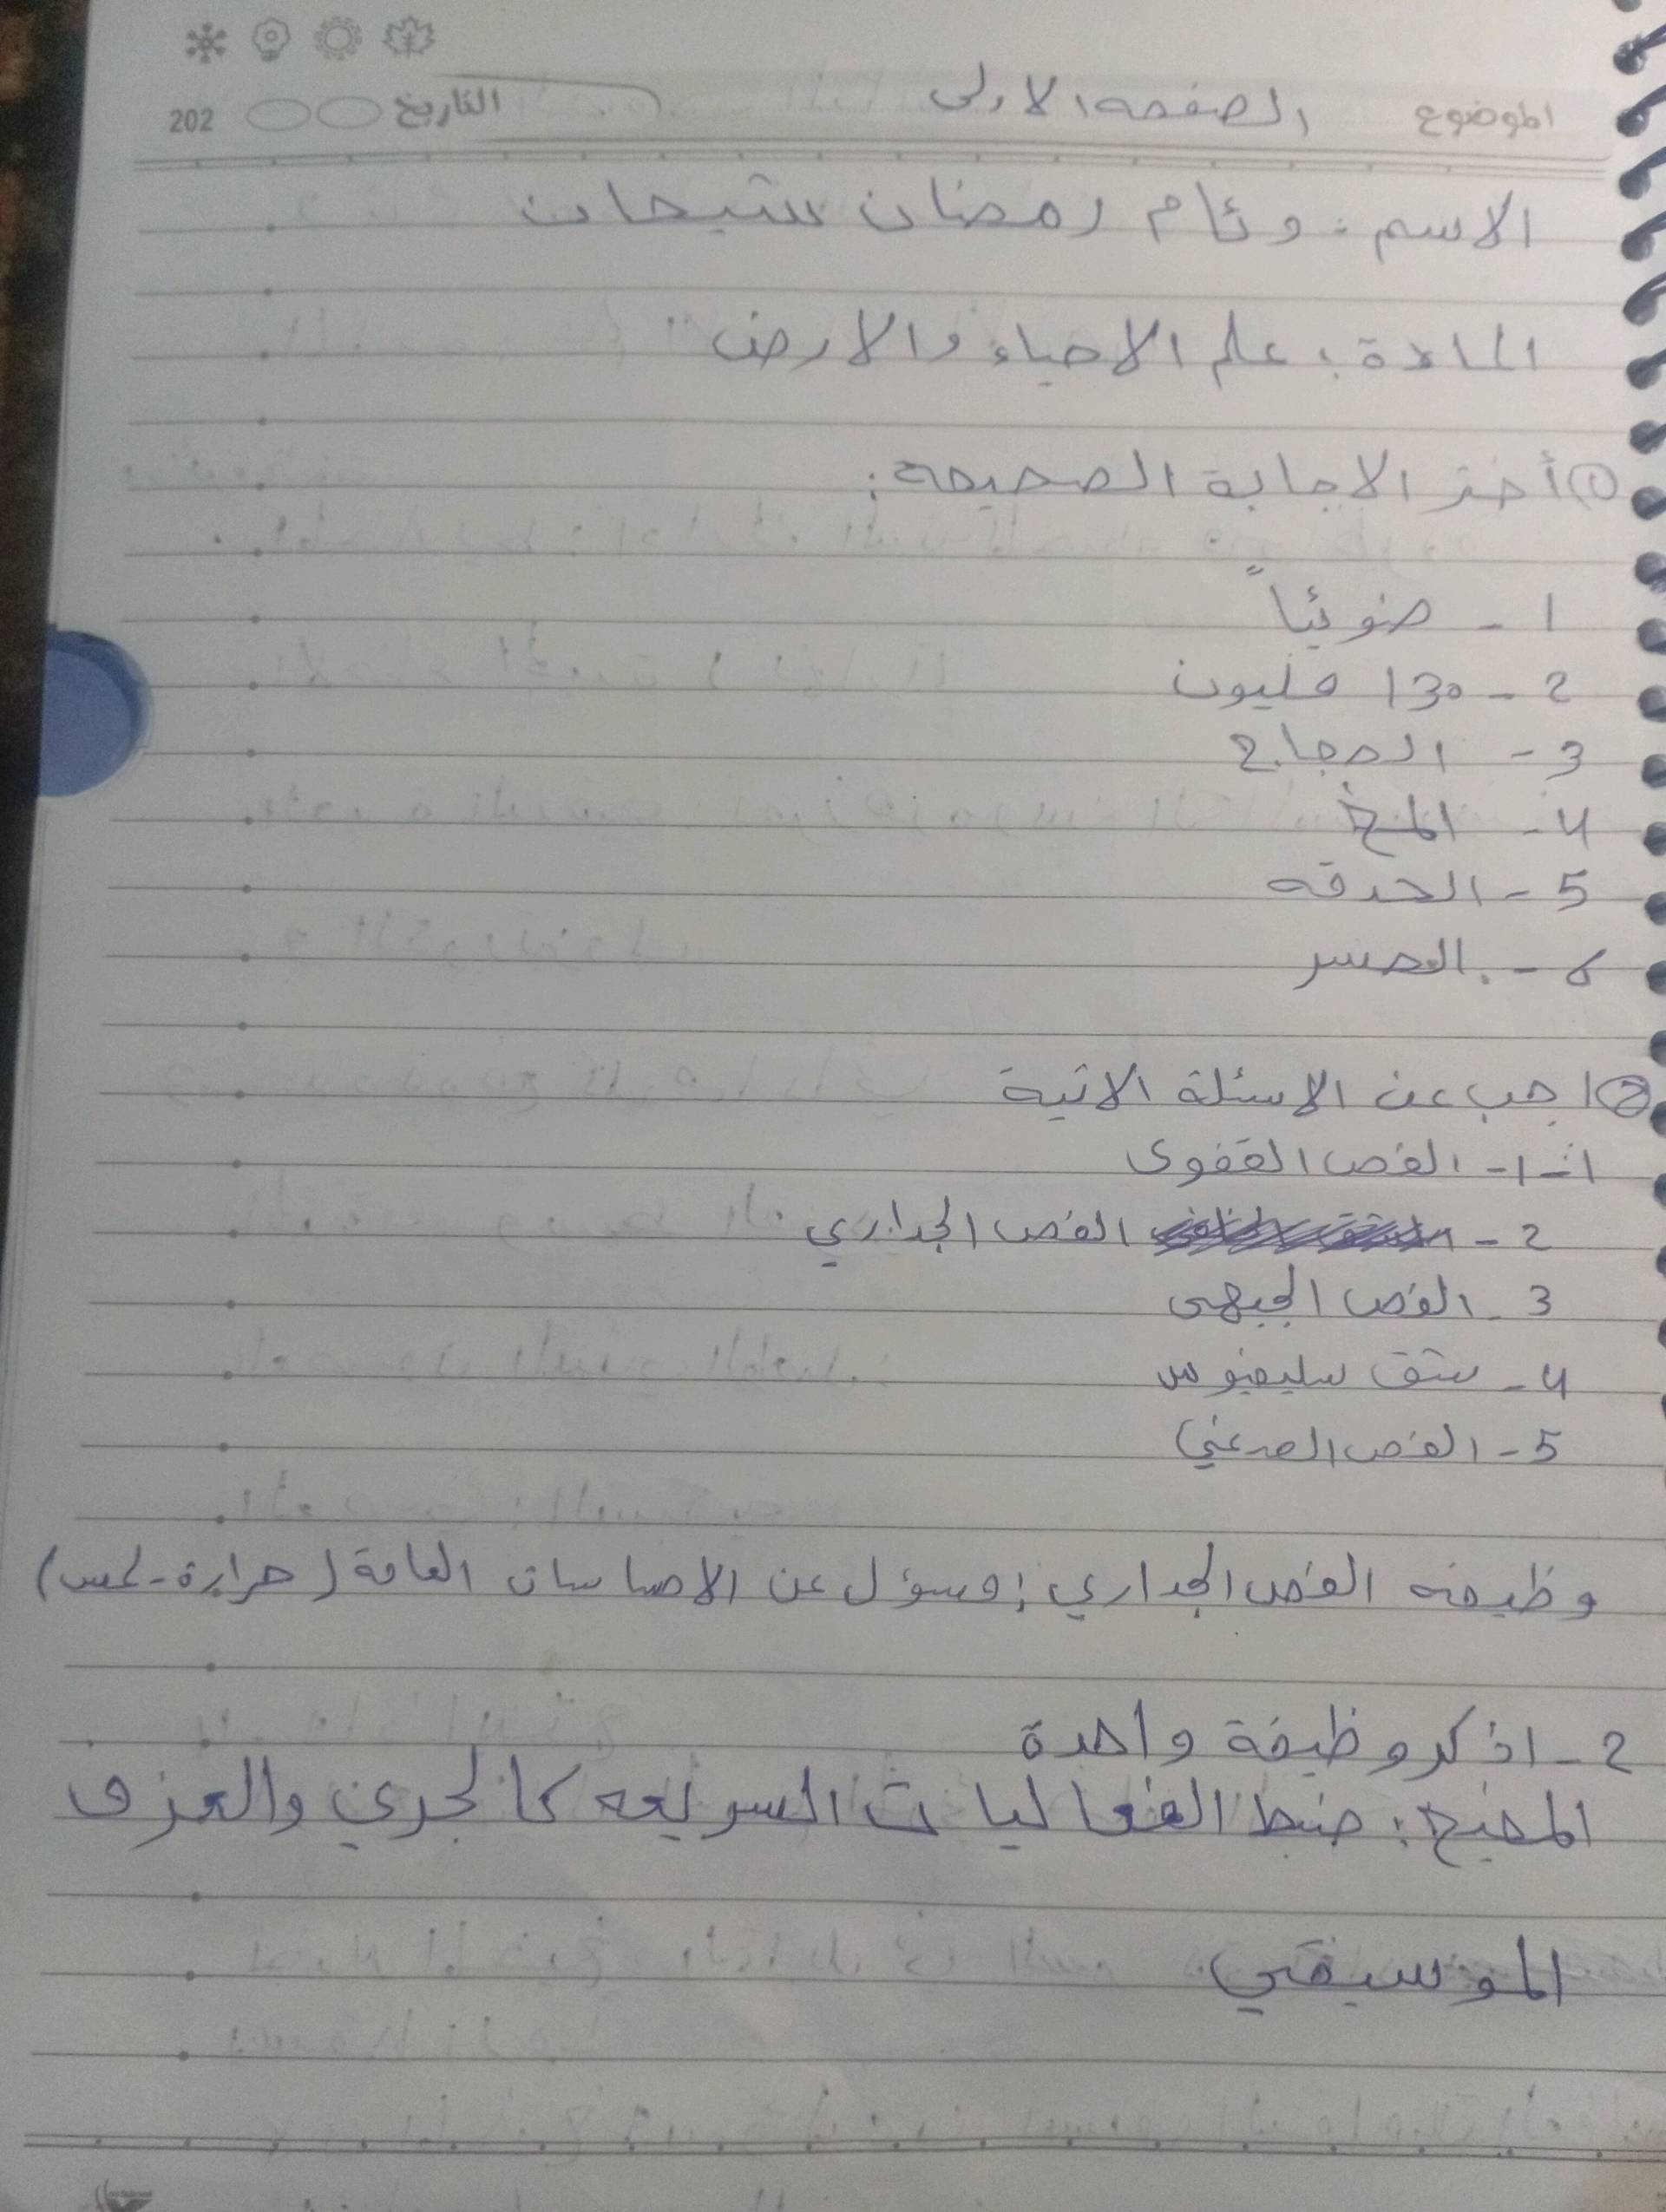 الموضوع الصفحه الاولى التاريخ 202
الاسم: وئام رمضان شيحان
المادة: علم الاحياء والارض
① أختر الاجابة الصحيحه:
1 - ضوئياً
2 - 130 مليون
3 - الحجاج
4 - المخ
5 - الحدقه
6 - الحسر
② اجب عن الاسئلة الاتية
1 - 1 - الفص القفوي
2 - الفص الجداري
3 - الفص الجبهي
4 - شق سليفيوس
5 - الفص الصدغي
وظيفه الفص الجداري: مسؤل عن الاحساسات العامة (حرارة - لمس)
2 - اذكر وظيفة واحدة
المخيخ: ضبط الفعاليات السريعه كالجري والعزف
الموسيقي